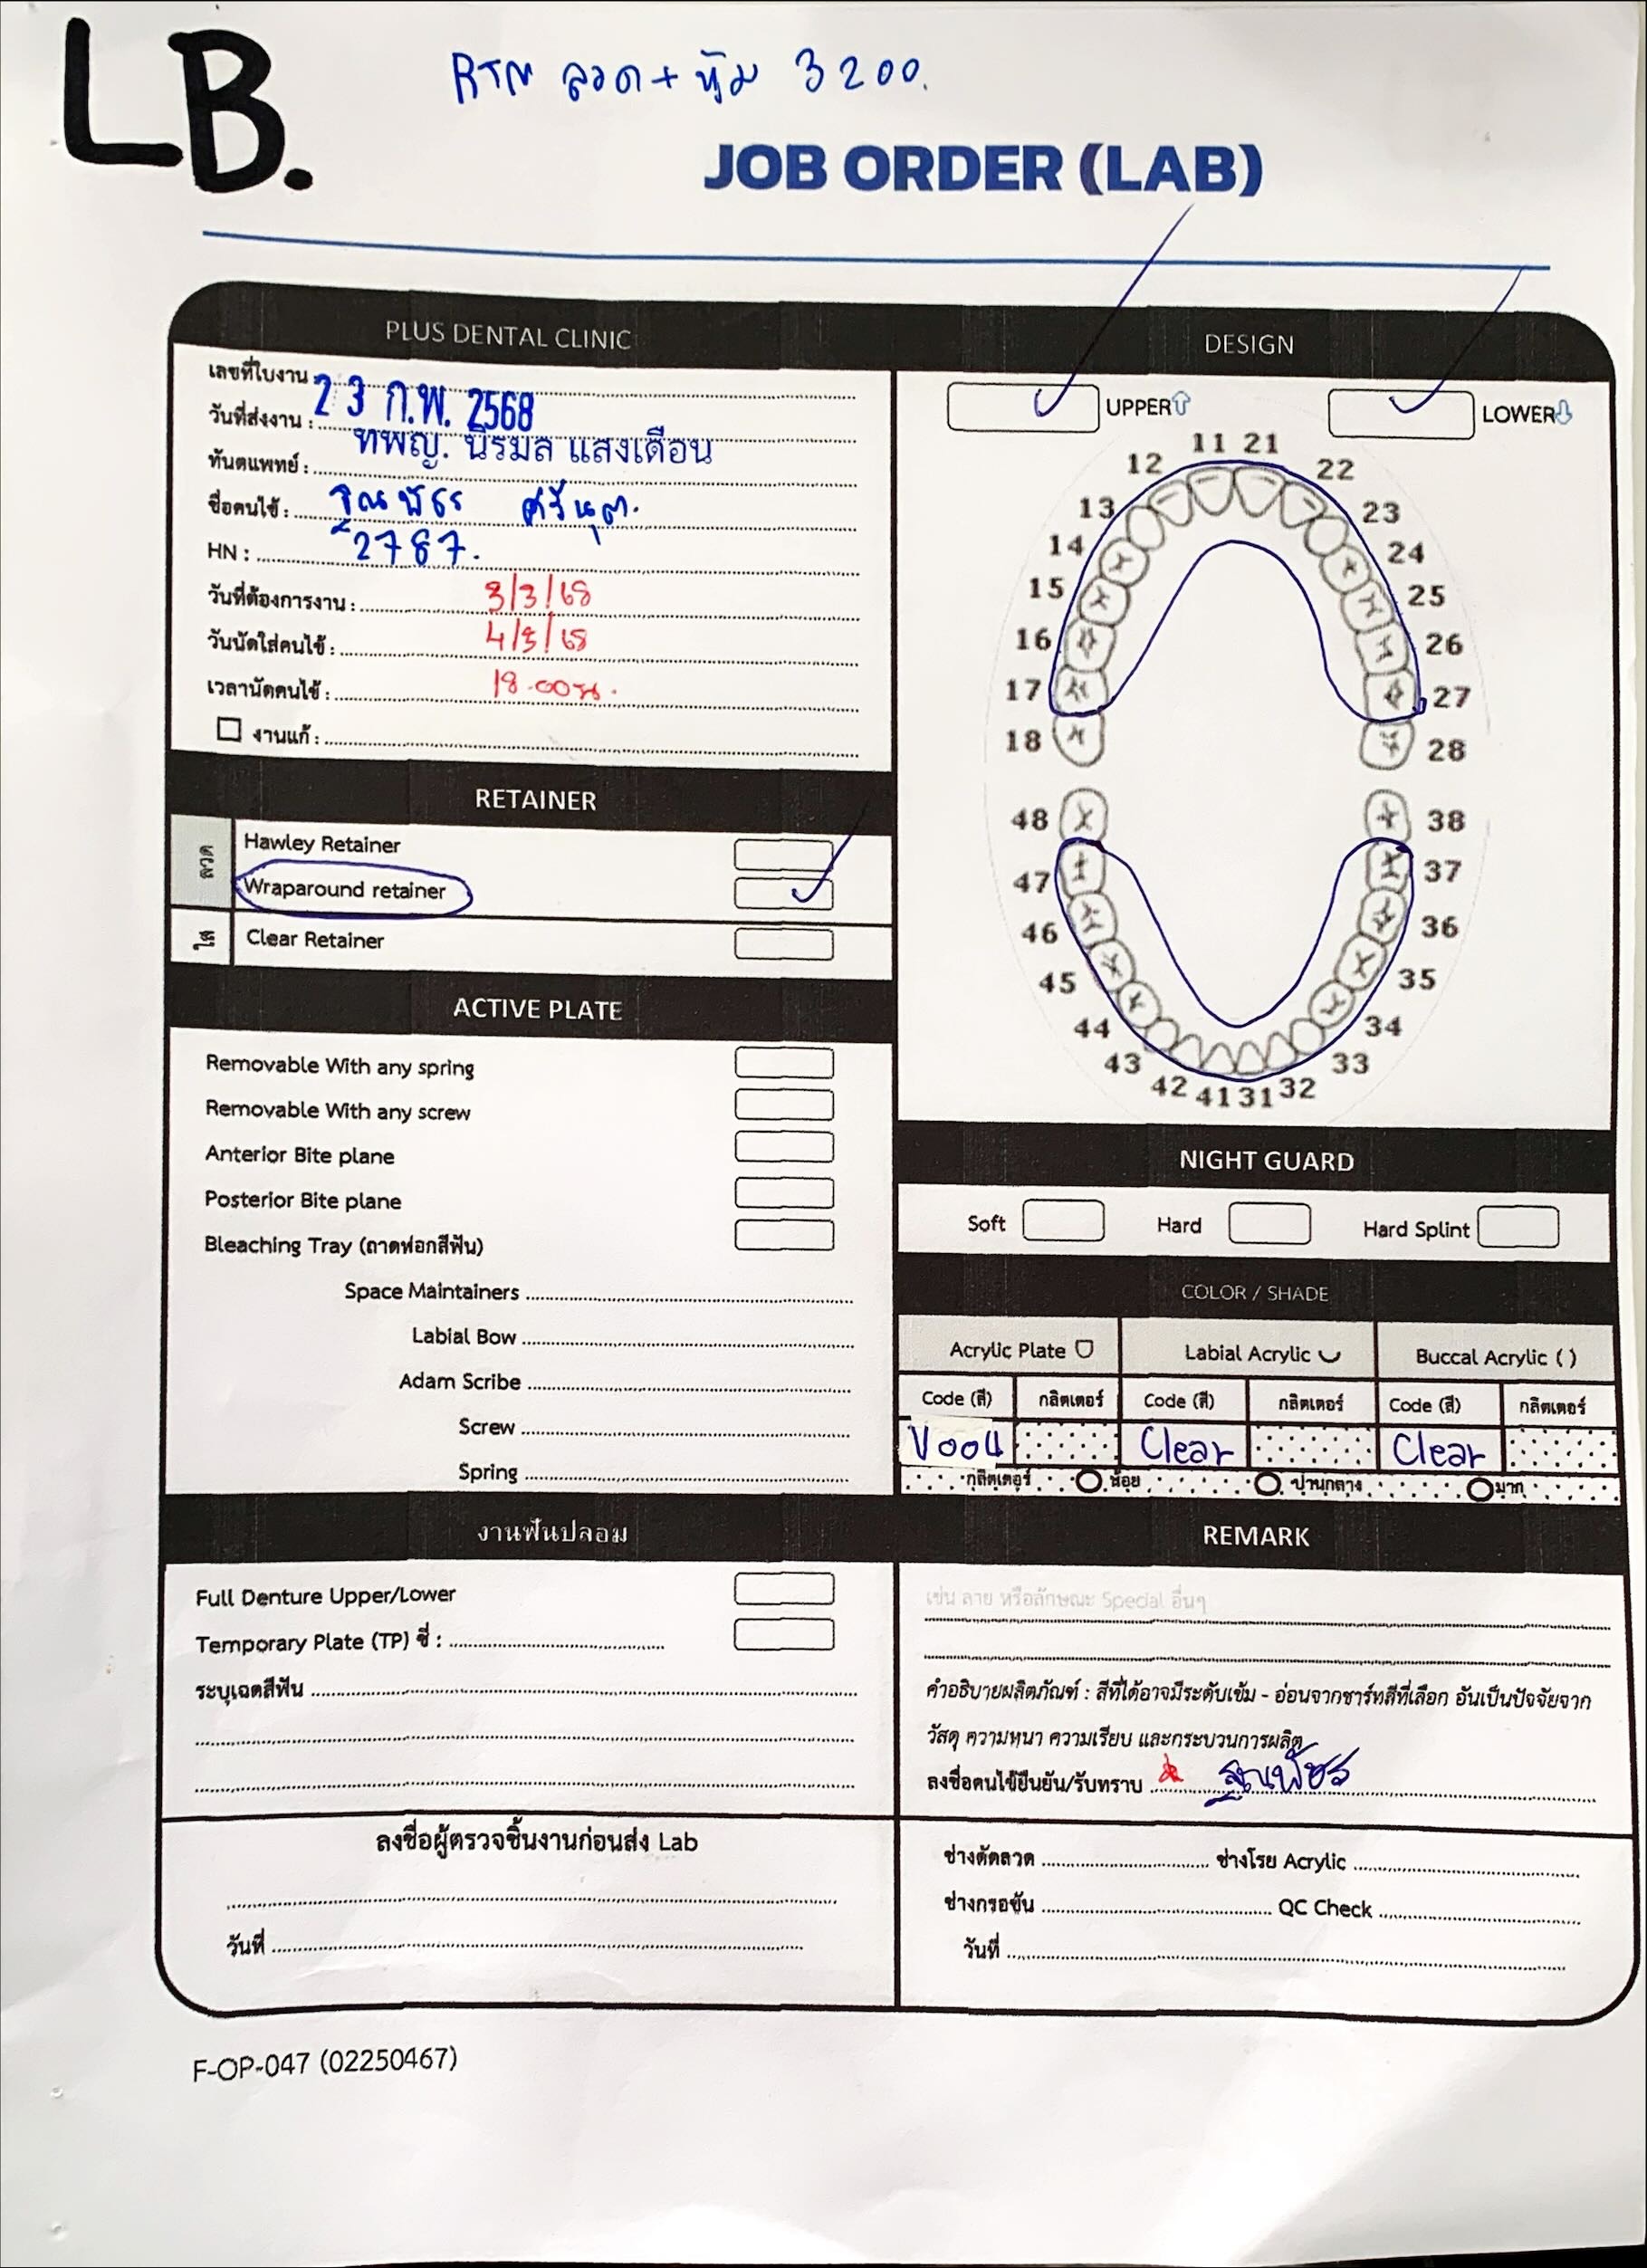 LB.
RTN ลวด + หุ้ม 3200.
JOB ORDER (LAB)
PLUS DENTAL CLINIC
เลขที่ใบงาน
วันที่ส่งงาน : 23 ก.พ. 2568
ทันตแพทย์ : ทพญ. นิรมล แสงเดือน
ชื่อคนไข้ : ฐณพัชร
HN : 2787.
วันที่ต้องการงาน : 3/3/68
วันนัดใส่คนไข้ : 4/3/68
เวลานัดคนไข้ : 18.00น.
งานแก้ :
RETAINER
ลวด
Hawley Retainer
Wraparound retainer
ใส
Clear Retainer
ACTIVE PLATE
Removable With any spring
Removable With any screw
Anterior Bite plane
Posterior Bite plane
Bleaching Tray (ถาดฟอกสีฟัน)
Space Maintainers
Labial Bow
Adam Scribe
Screw
Spring
งานฟันปลอม
Full Denture Upper/Lower
Temporary Plate (TP) ซี่ :
ระบุเฉดสีฟัน
ลงชื่อผู้ตรวจชิ้นงานก่อนส่ง Lab
วันที่
DESIGN
UPPER LOWER
11 21
12 22
13 23
14 24
15 25
16 26
17 27
18 28
48 38
47 37
46 36
45 35
44 34
43 33
42 41 31 32
NIGHT GUARD
Soft Hard Hard Splint
COLOR / SHADE
Acrylic Plate Labial Acrylic Buccal Acrylic ( )
Code (สี) กลิตเตอร์ Code (สี) กลิตเตอร์ Code (สี) กลิตเตอร์
V004 Clear Clear
กลิตเตอร์ น้อย ปานกลาง มาก
REMARK
เช่น ลาย หรือลักษณะ Special อื่นๆ
คำอธิบายผลิตภัณฑ์ : สีที่ได้อาจมีระดับเข้ม - อ่อนจากชาร์ทสีที่เลือก อันเป็นปัจจัยจาก
วัสดุ ความหนา ความเรียบ และกระบวนการผลิต
ลงชื่อคนไข้ยืนยัน/รับทราบ ฐณพัชร
ช่างดัดลวด ช่างโรย Acrylic
ช่างกรอขัน QC Check
วันที่
F-OP-047 (02250467)